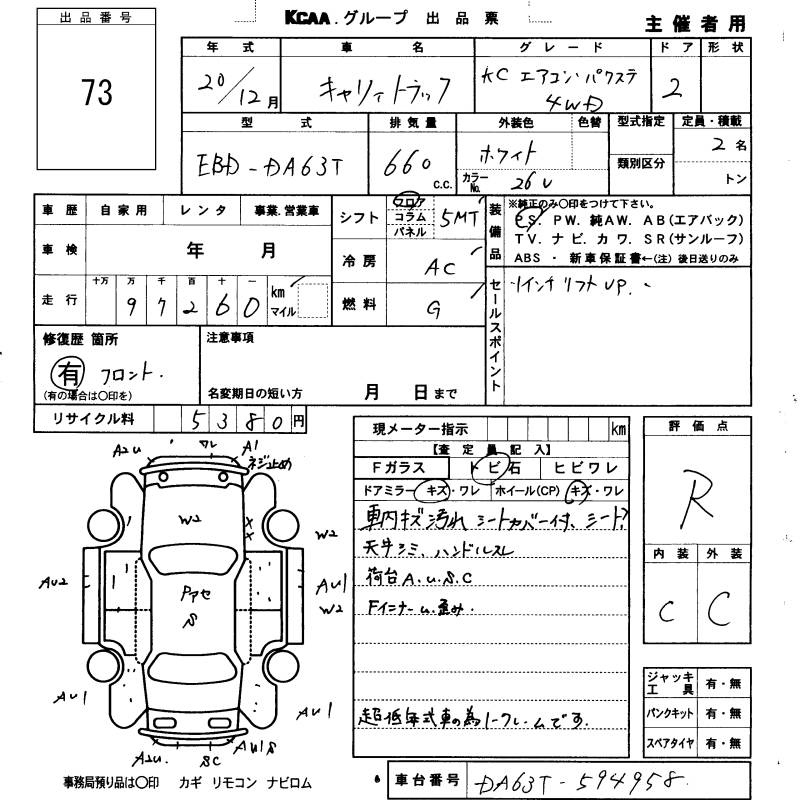 出品番号
73
KCAA.グループ 出品票
主催者用
年式 車名 グレード ドア 形状
20/12月 キャリィトラック KC エアコン・パワステ 4WD 2
型式 排気量 外装色 色替 型式指定 定員・積載
EBD-DA63T 660 C.C. ホワイト 2名
カラーNo. 26U 類別区分 トン
車歴 自家用 レンタ 事業.営業車
車検 年 月
走行 十万 万 千 百 十 一 km マイル
97260
シフト フロア コラム パネル 5MT
冷房 AC
燃料 G
装備品
※純正のみ〇印をつけて下さい。
PS. PW. 純AW. AB(エアバック)
TV. ナビ. カワ. SR(サンルーフ)
ABS ・ 新車保証書←(注)後日送りのみ
セールスポイント
1インチリフトUP.
修復歴 箇所
有 フロント.
(有の場合は〇印を)
注意事項
名変期日の短い方 月 日まで
リサイクル料 5380円
現メーター指示 km
【査定員記入】
Fガラス トビ石 ヒビワレ
ドアミラー キズ・ワレ ホイール(CP) キズ・ワレ
車内キズ汚れ シートカバー付、シート?
天井シミ、ハンドルスレ
荷台A.U.S.C
Fインナーu.歪み.
超低年式車の為ノークレームです.
評価点
R
内装 外装
C C
ジャッキ 工具 有・無
パンクキット 有・無
スペアタイヤ 有・無
A2U ワレ A1
ネジ止め
W2
W2
AU2
Pアセ
S
AU1
W2
AU1
AU1
A2U. SC AU1S
事務局預り品は〇印 カギ リモコン ナビロム
車台番号 DA63T-594958